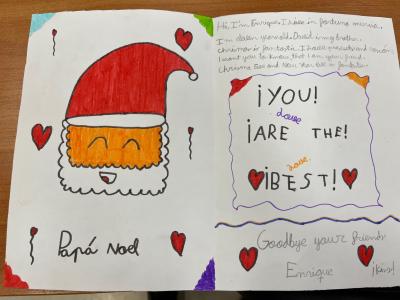 Papá Noel
Hi, I'm Enrique, I live in fortuna murcia.
I'm eleven years old. David is my brother.
christmas is fantastic. I have presents and
I want you to know that I am your friend.
Chrismas Eve and New Year Eve is fantastic.
¡YOU!
Love
¡ARE THE!
Love
¡BEST!
Goodbye your friends
Enrique